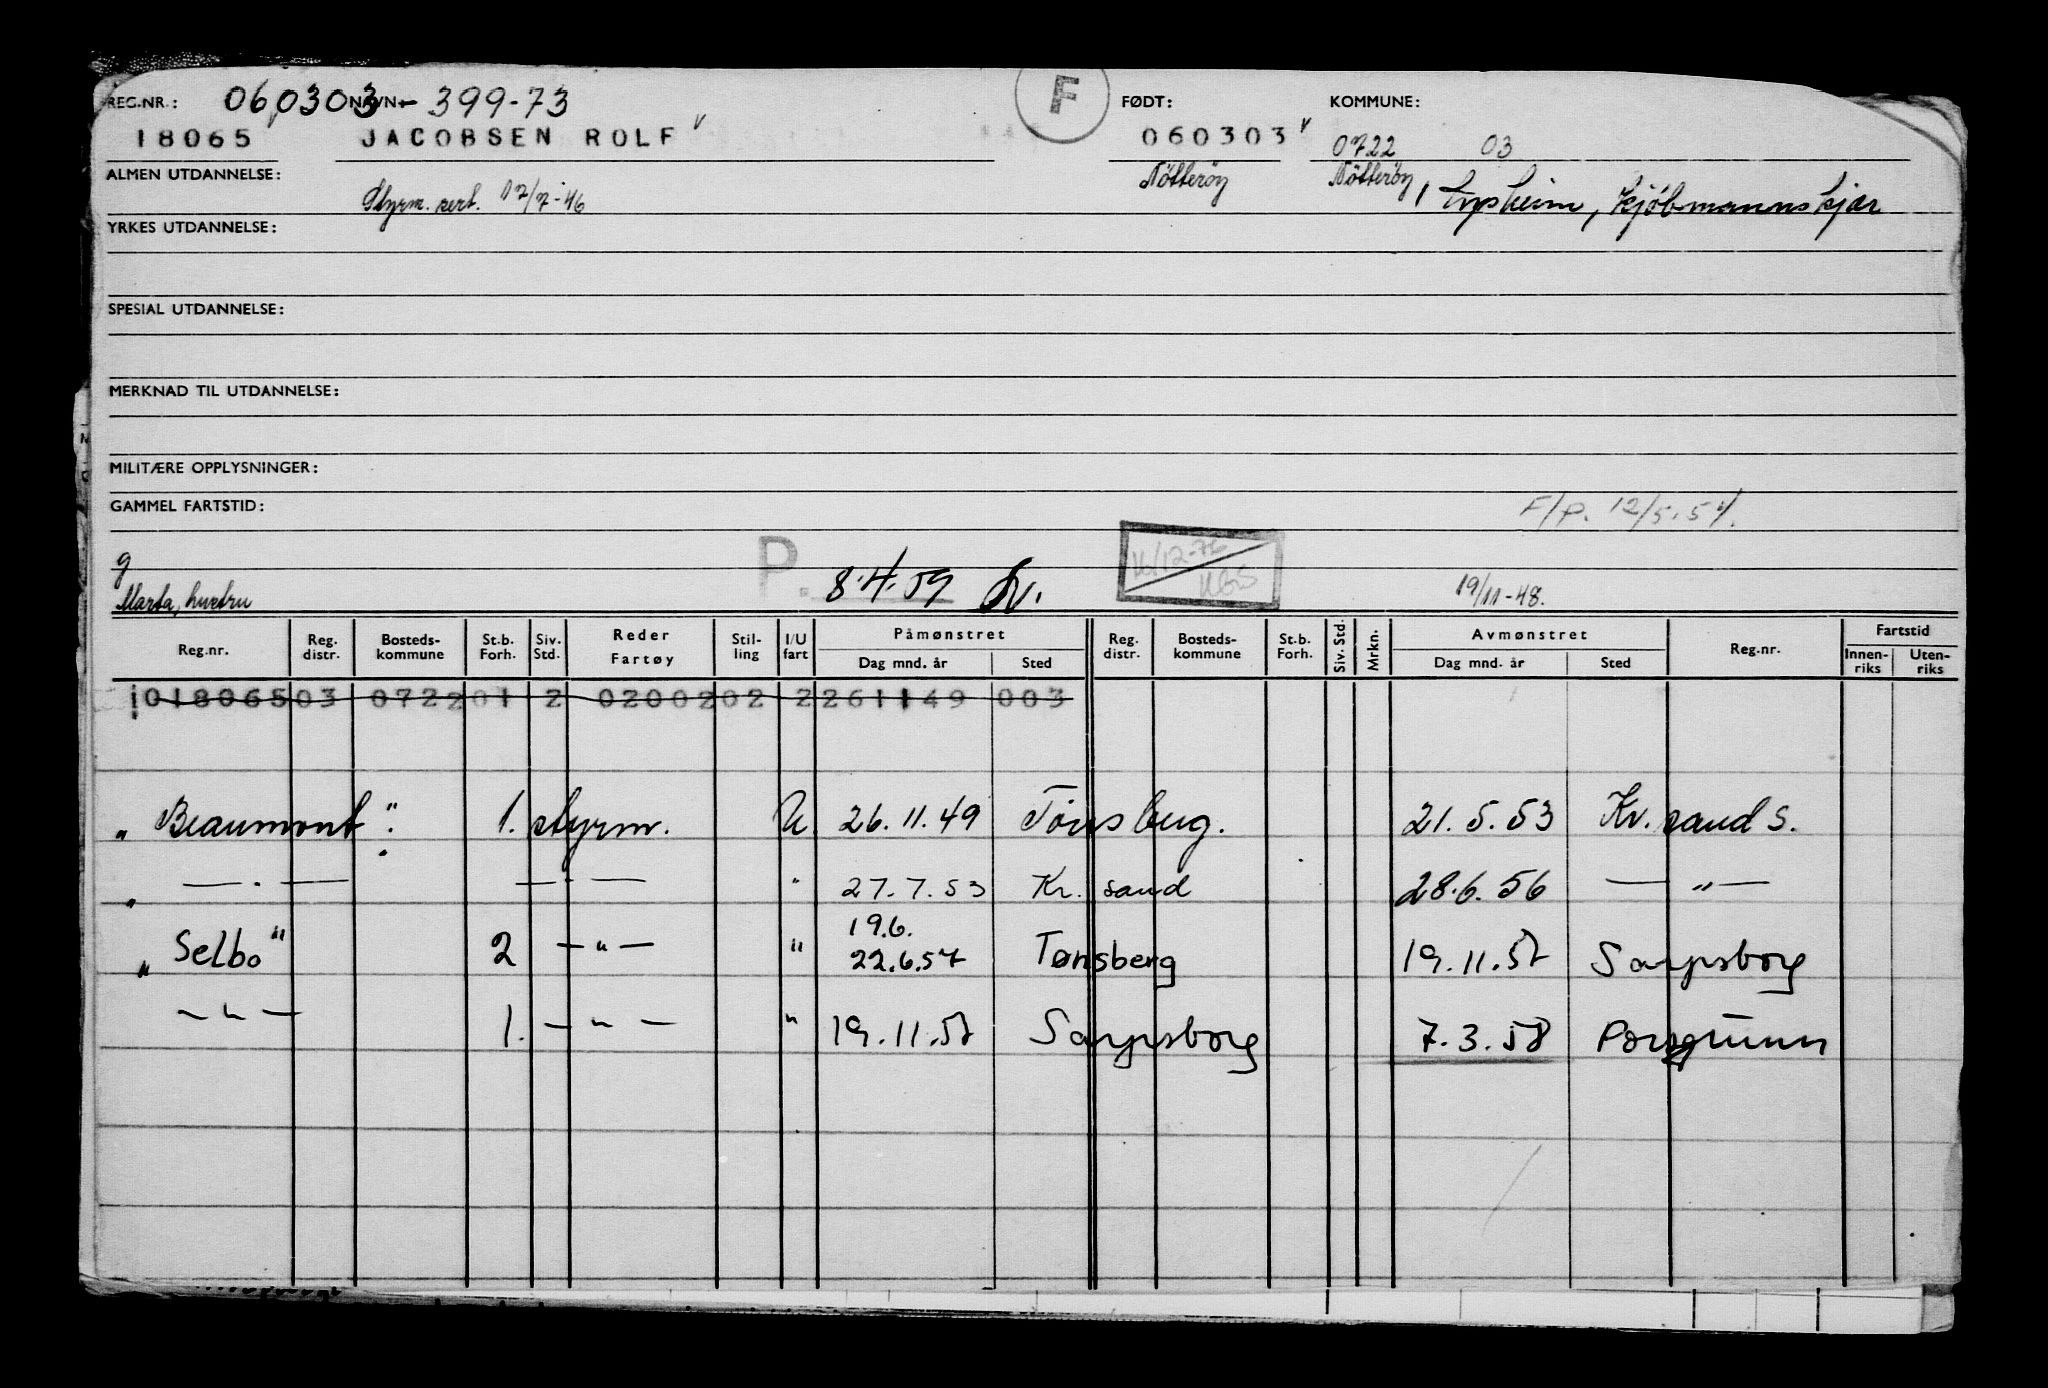 REG.NR.: 060303 NAVN - 399-73 F FØDT: KOMMUNE:
18065 JACOBSEN ROLF v 060303 v 0722 03
ALMEN UTDANNELSE: Nötteröy Nötteröy, Lysheim, Kjöbmannskjær
Styrm. sert. 12/7-46
YRKES UTDANNELSE:
SPESIAL UTDANNELSE:
MERKNAD TIL UTDANNELSE:
MILITÆRE OPPLYSNINGER:
GAMMEL FARTSTID: F/P. 12/5.54.
g
Marta, hustru P. 8.4.59 16/12-76 19/11-48.
Reg.nr. Reg. distr. Bosteds-kommune St.b. Forh. Siv. Std. Reder Fartøy Stil-ling I/U fart Påmønstret Dag mnd. år Sted Reg. distr. Bosteds-kommune St.b. Forh. Siv. Std. Mrkn. Avmønstret Dag mnd. år Sted Reg.nr. Fartstid Innen-riks Uten-riks
01806503 0722 01 2 0200202 2 261149 003
„Beaumont". 1. styrm. U 26.11.49 Tönsberg. 21.5.53 Kr.sand S.
„ — . — — . — " 27.7.53 Kr. sand 28.6.56 — " —
19.6.
„Selbo" 2 — " — " 22.6.57 Tønsberg 19.11.57 Sarpsborg
— " — 1. — " — " 19.11.57 Sarpsborg 7.3.58 Porsgrunn